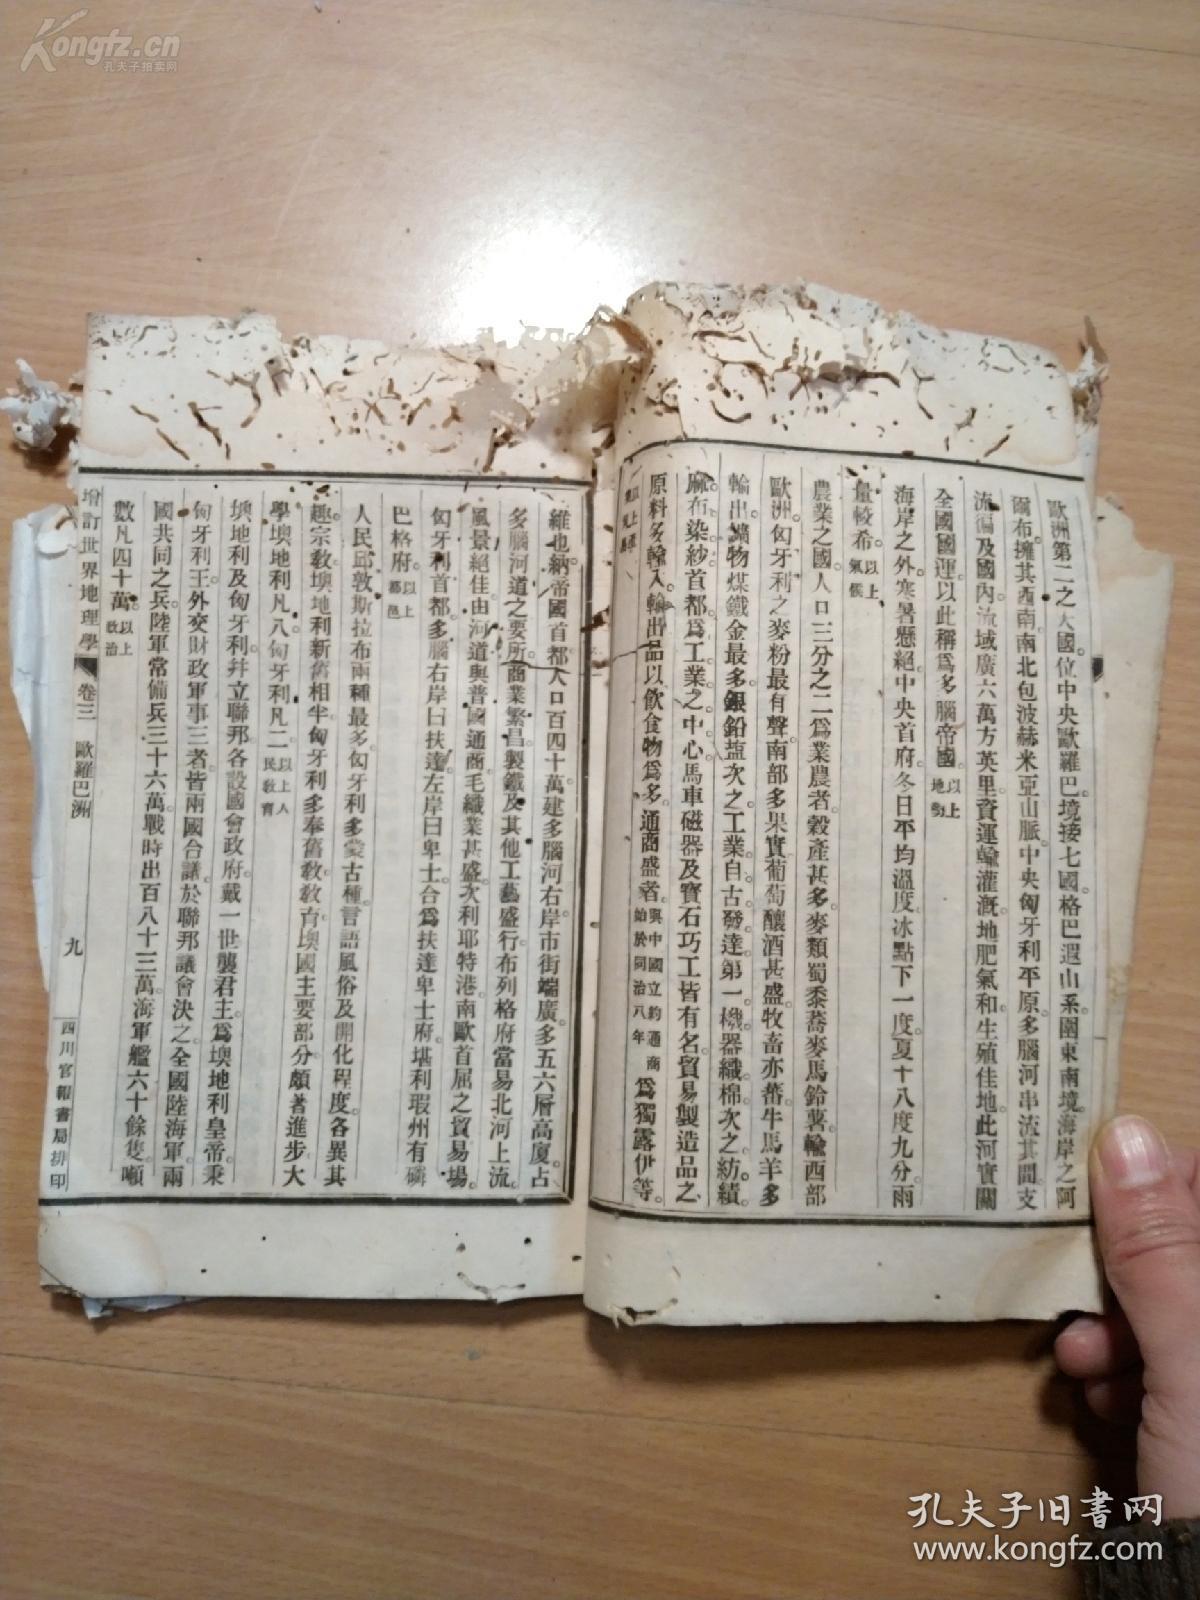 Kongfz.cn
孔夫子拍卖网
歐洲第二之大國。位中央歐羅巴。境接七國。格巴遐山系圍東南境。海岸之阿
爾布擁其西南。南北包波赫米亞山脈。中央匈牙利平原。多腦河串流其間。支
流徧及國內。流域廣六萬方英里。資運輸灌漑。地肥氣和。生殖佳地。此河實關
全國國運。以此稱爲多腦帝國。以上地勢
海岸之外。寒暑懸絕。中央首府。冬日平均溫度。冰點下一度。夏十八度九分。雨
量較希。以上氣候
農業之國。人口三分之二爲業農者。穀產甚多。麥類蜀黍蕎麥馬鈴薯。輸西部
歐洲。匈牙利之麥粉最有聲。南部多果實。葡萄釀酒甚盛。牧畜亦蕃。牛馬羊多
輸出。鑛物煤鐵金最多。銀鉛塩次之。工業自古發達。第一機器織棉。次之紡績。
麻布染紗。首都爲工業之中心。馬車磁器及寶石巧工皆有名。貿易製造品之
原料多輸入。輸出品以飲食物爲多。通商盛者。與中國立約通商始於同治八年爲獨露伊等。
以上產業
維也納帝國首都。人口百四十萬。建多腦河右岸。市街端廣。多五六層高廈。占
多腦河道之要所。商業繁昌。製鐵及其他工藝盛行。布列格府當易北河上流。
風景絕佳。由河道與普國通商。毛織業甚盛。次利耶特港。南歐首屈之貿易場。
匈牙利首都。多腦右岸曰扶達。左岸曰卑士。合爲扶達卑士府。堪利瑕州有磷
巴格府。以上都邑
人民邱敦斯拉布兩種最多。匈牙利多蒙古種。言語風俗及開化程度。各異其
趣。宗敎。墺地利新舊相半。匈牙利多奉舊敎。敎育。墺國主要部分。頗著進步。大
學。墺地利凡八。匈牙利凡二。以上人民敎育
墺地利及匈牙利。幷立聯邦。各設國會政府。戴一世襲君主。爲墺地利皇帝。秉
匈牙利王。外交財政軍事三者。皆兩國合議。於聯邦議會決之。全國陸海軍。兩
國共同之兵。陸軍常備兵三十六萬。戰時出百八十三萬。海軍艦六十餘隻。噸
數凡四十萬。以上政治
增訂世界地理學 卷三 歐羅巴洲 九 四川官報書局排印
孔夫子旧书网
www.kongfz.com